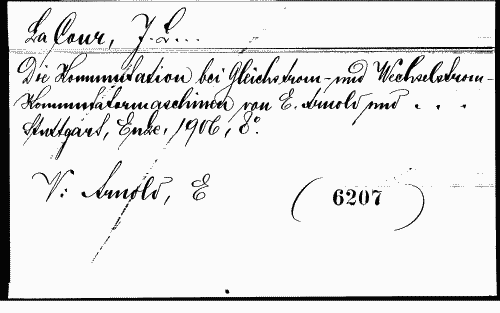 La Cour, J. L...
Die Kommutation bei Gleichstrom- und Wechselstrom-
Kommutatormaschinen von E. Arnold und . . .
Stuttgart, Enke, 1906, 8°.
V: Arnold, E
(6207)